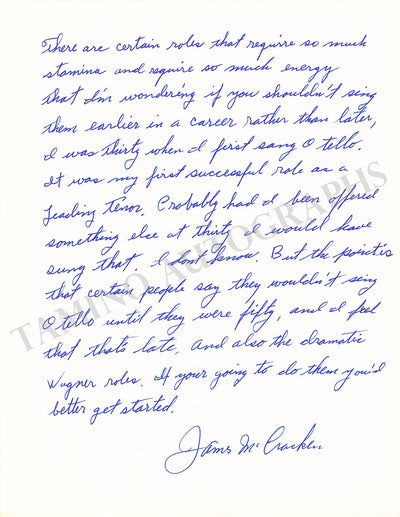 There are certain roles that require so much
stamina and require so much energy
that I'm wondering if you shouldn't sing
them earlier in a career rather than later,
I was thirty when I first sang Otello.
It was my first successful role as a
leading tenor. Probably had I been offered
something else at thirty I would have
sung that. I dont know. But the point is
that certain people say they wouldn't sing
Otello until they were fifty, and I feel
that that's late. And also the dramatic
Wagner roles. If your going to do them you'd
better get started.
James McCracken
TAMINO AUTOGRAPHS